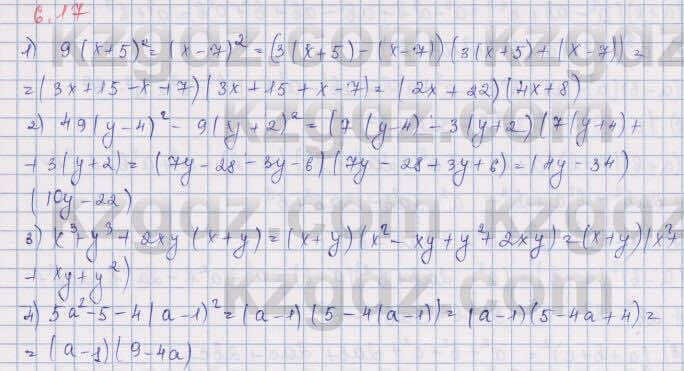 6.17
1) 9(x+5)² = (x-7)² = (3(x+5)-(x-7))(3(x+5)+(x-7)) =
= (3x+15-x+7)(3x+15+x-7) = (2x+22)(4x+8)
2) 49(y-4)² - 9(y+2)² = (7(y-4)-3(y+2)(7(y+4)+
+3(y+2) = (7y-28-3y-6)(7y-28+3y+6) = (4y-34)
(10y-22)
3) x³+y³+2xy(x+y) = (x+y)(x²-xy+y²+2xy) = (x+y)(x²+
+ xy+y²)
4) 5a²-5-4(a-1)² = (a-1)(5-4(a-1)) = (a-1)(5-4a+4) =
= (a-1)(9-4a)
kzgdz.com
kzgdz.com
kzgdz.com